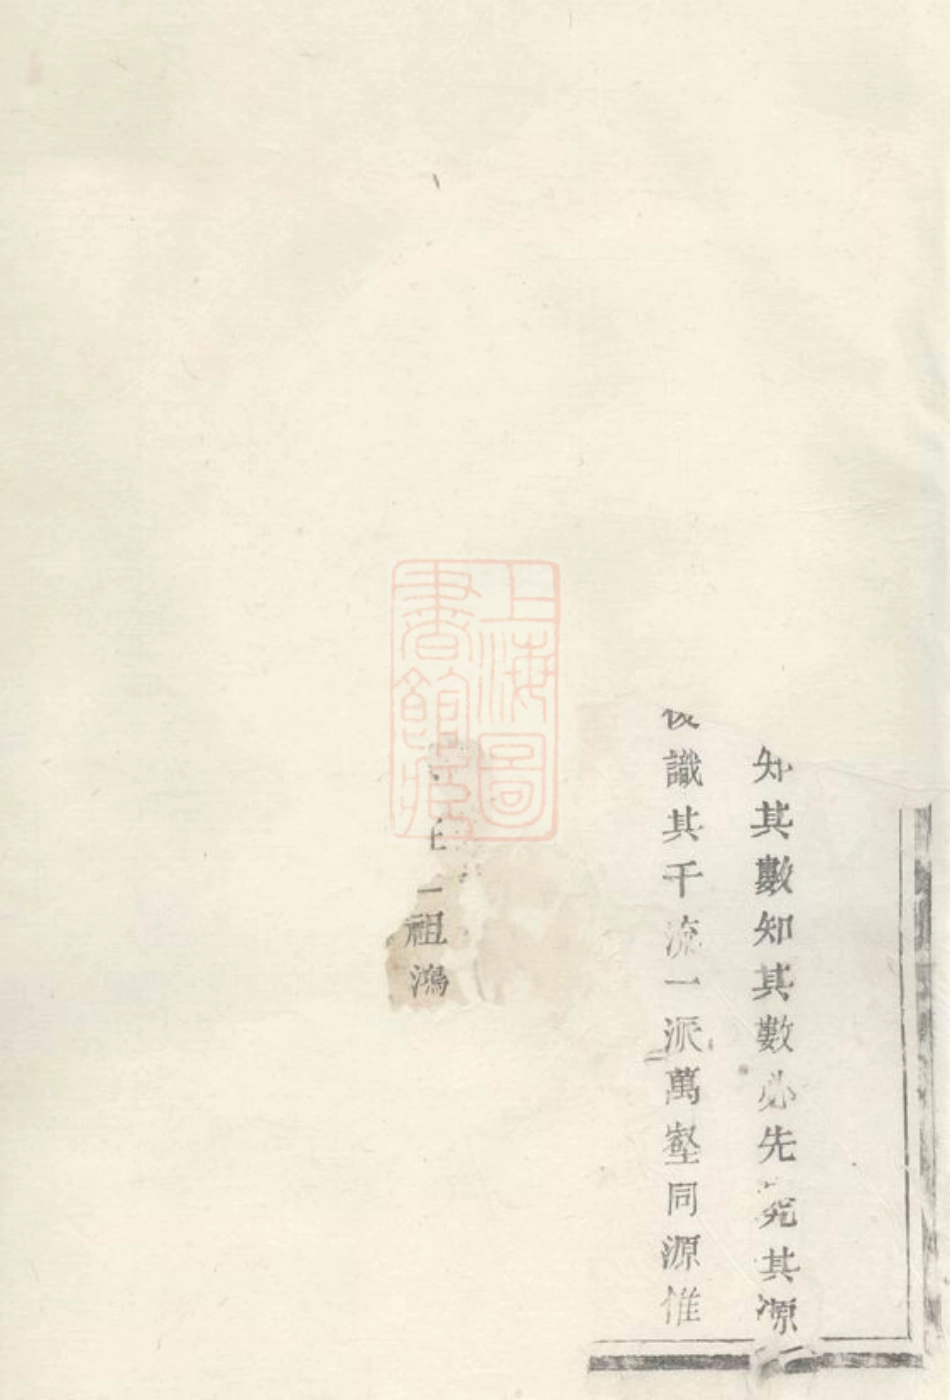 知其數知其數必先究其源
後識其千流一派萬壑同源惟
祖鴻
上海圖書館藏